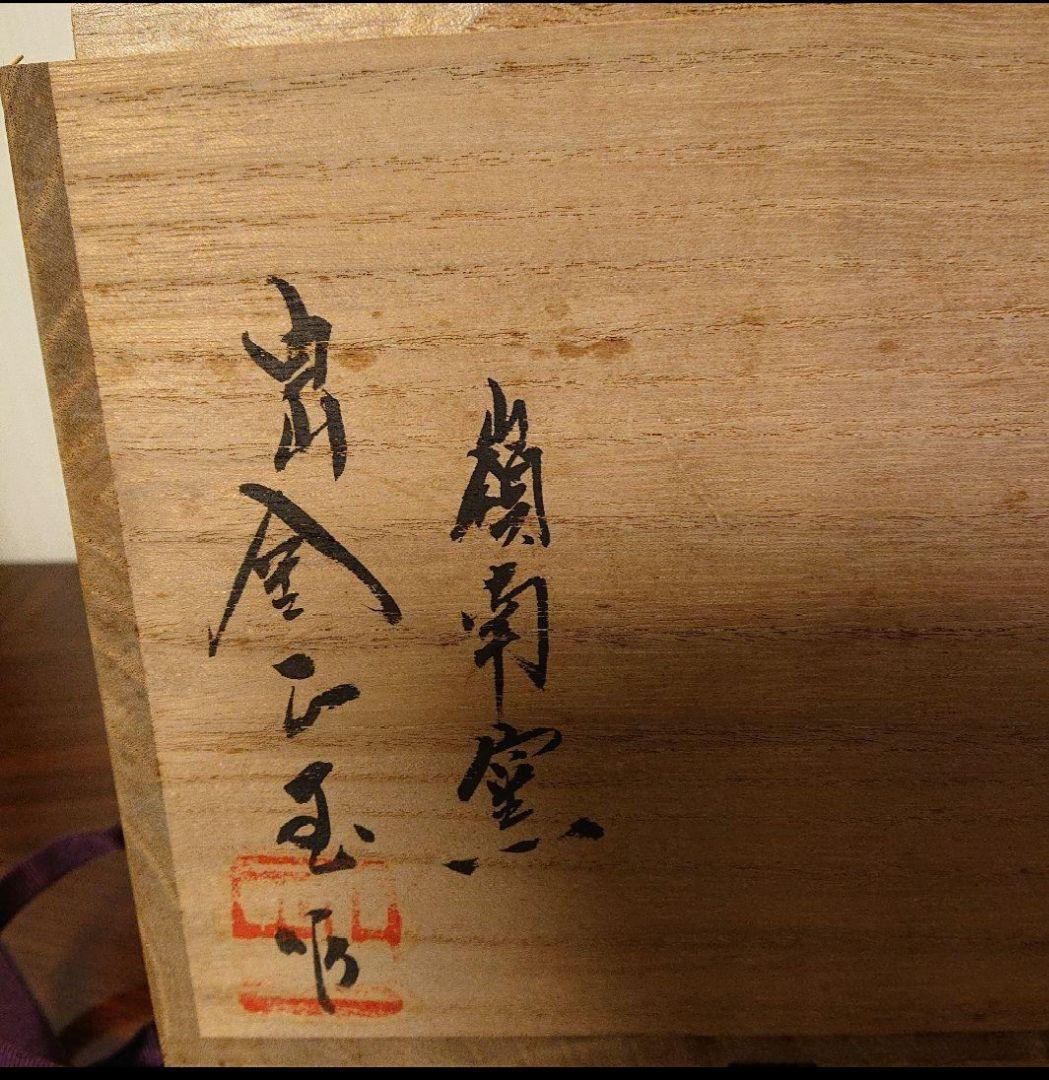 嶺南窯
白山金正玉作